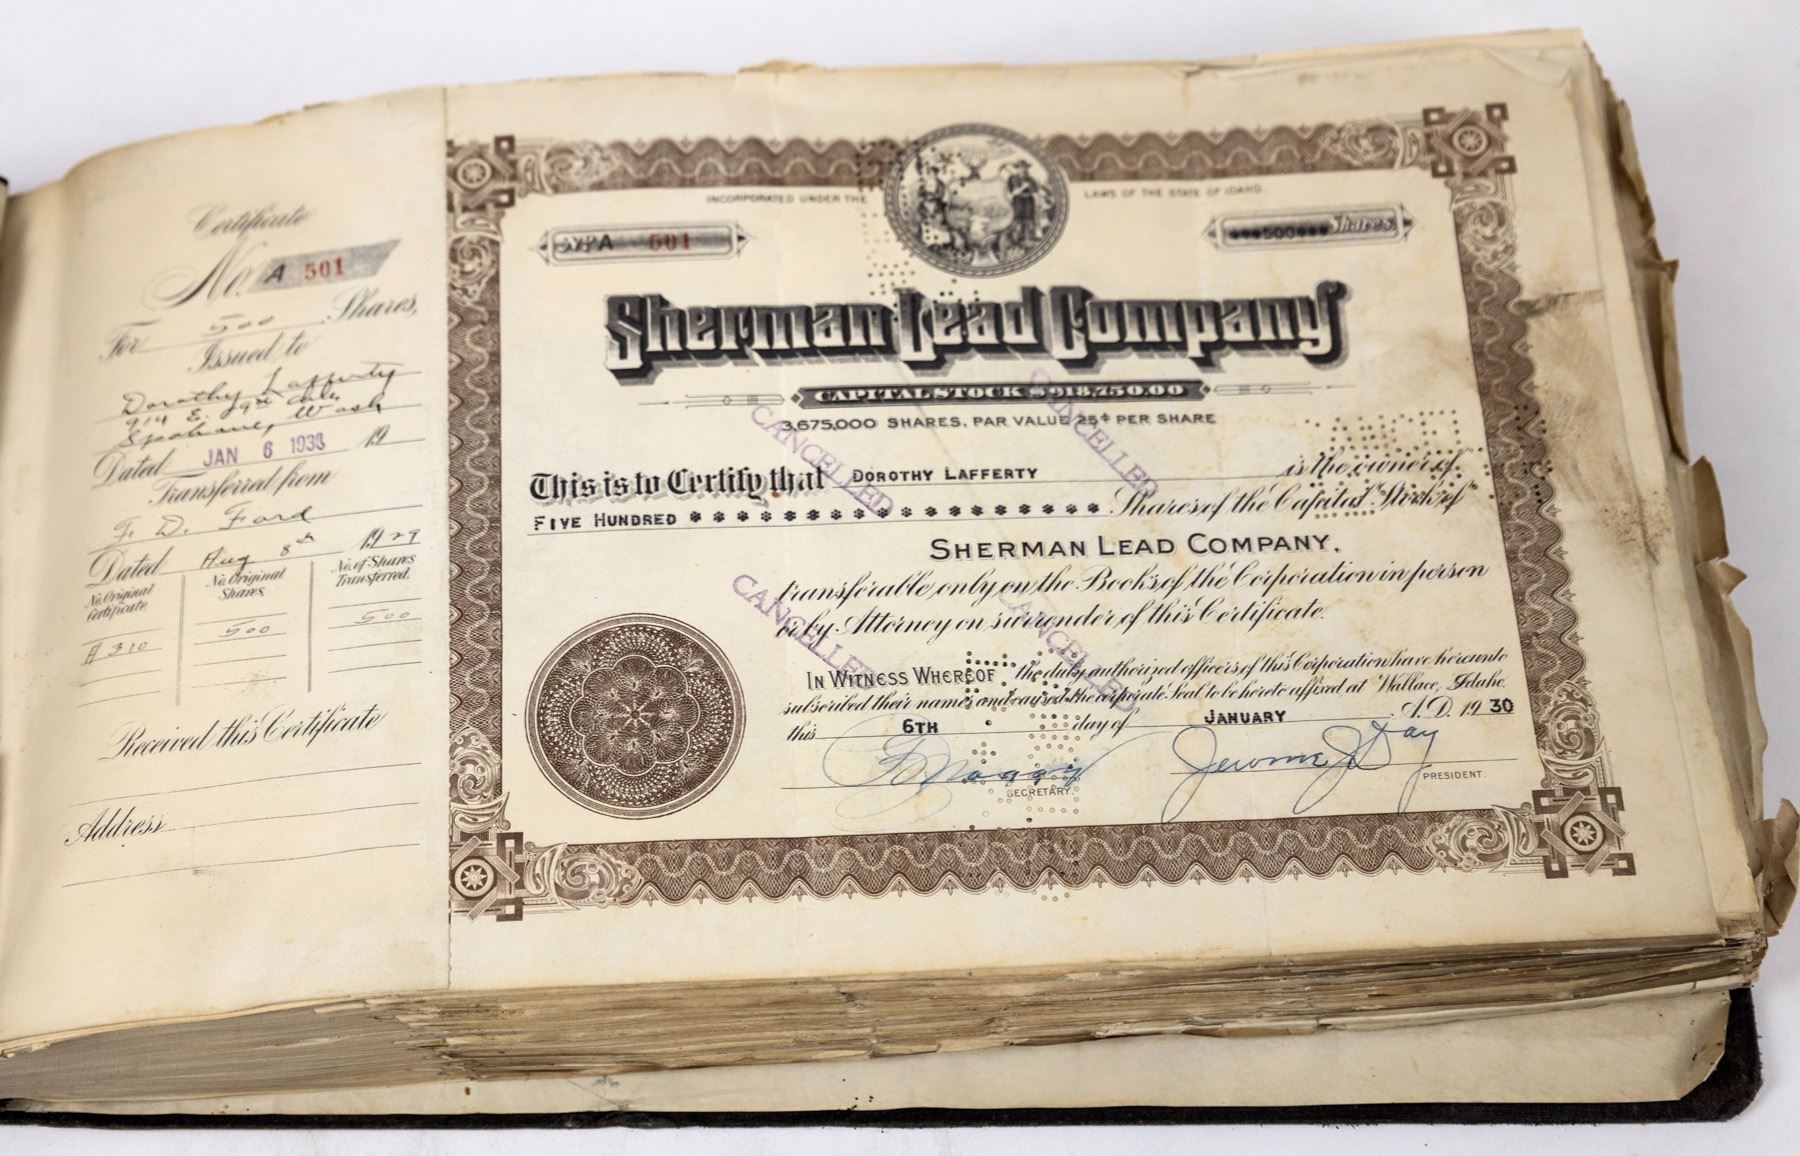 Certificate
No. A 501
For 500 Shares,
Issued to
Dorothy Lafferty
914 E. 9th Ave
Spokane, Wash
Dated JAN 6 1930 19
Transferred from
F. D. Ford
Dated Aug 8th 1929
No. Original Certificate No. Original Shares No. of Shares Transferred.
A 310 500 500
Received this Certificate
Address
INCORPORATED UNDER THE LAWS OF THE STATE OF IDAHO.
A 501
***500*** Shares
Sherman Lead Company
CAPITAL STOCK $918,750.00
3,675,000 SHARES, PAR VALUE 25¢ PER SHARE
CANCELLED CANCELLED
This is to Certify that DOROTHY LAFFERTY is the owner of
FIVE HUNDRED ****************** Shares of the Capital Stock of
SHERMAN LEAD COMPANY,
transferable only on the Books of the Corporation in person
or by Attorney on surrender of this Certificate.
CANCELLED CANCELLED
IN WITNESS WHEREOF the duly authorized officers of this Corporation have hereunto
subscribed their names and caused the corporate Seal to be hereto affixed at Wallace, Idaho.
this 6TH day of JANUARY A.D. 19 30
Jerome J Day
SECRETARY. PRESIDENT.